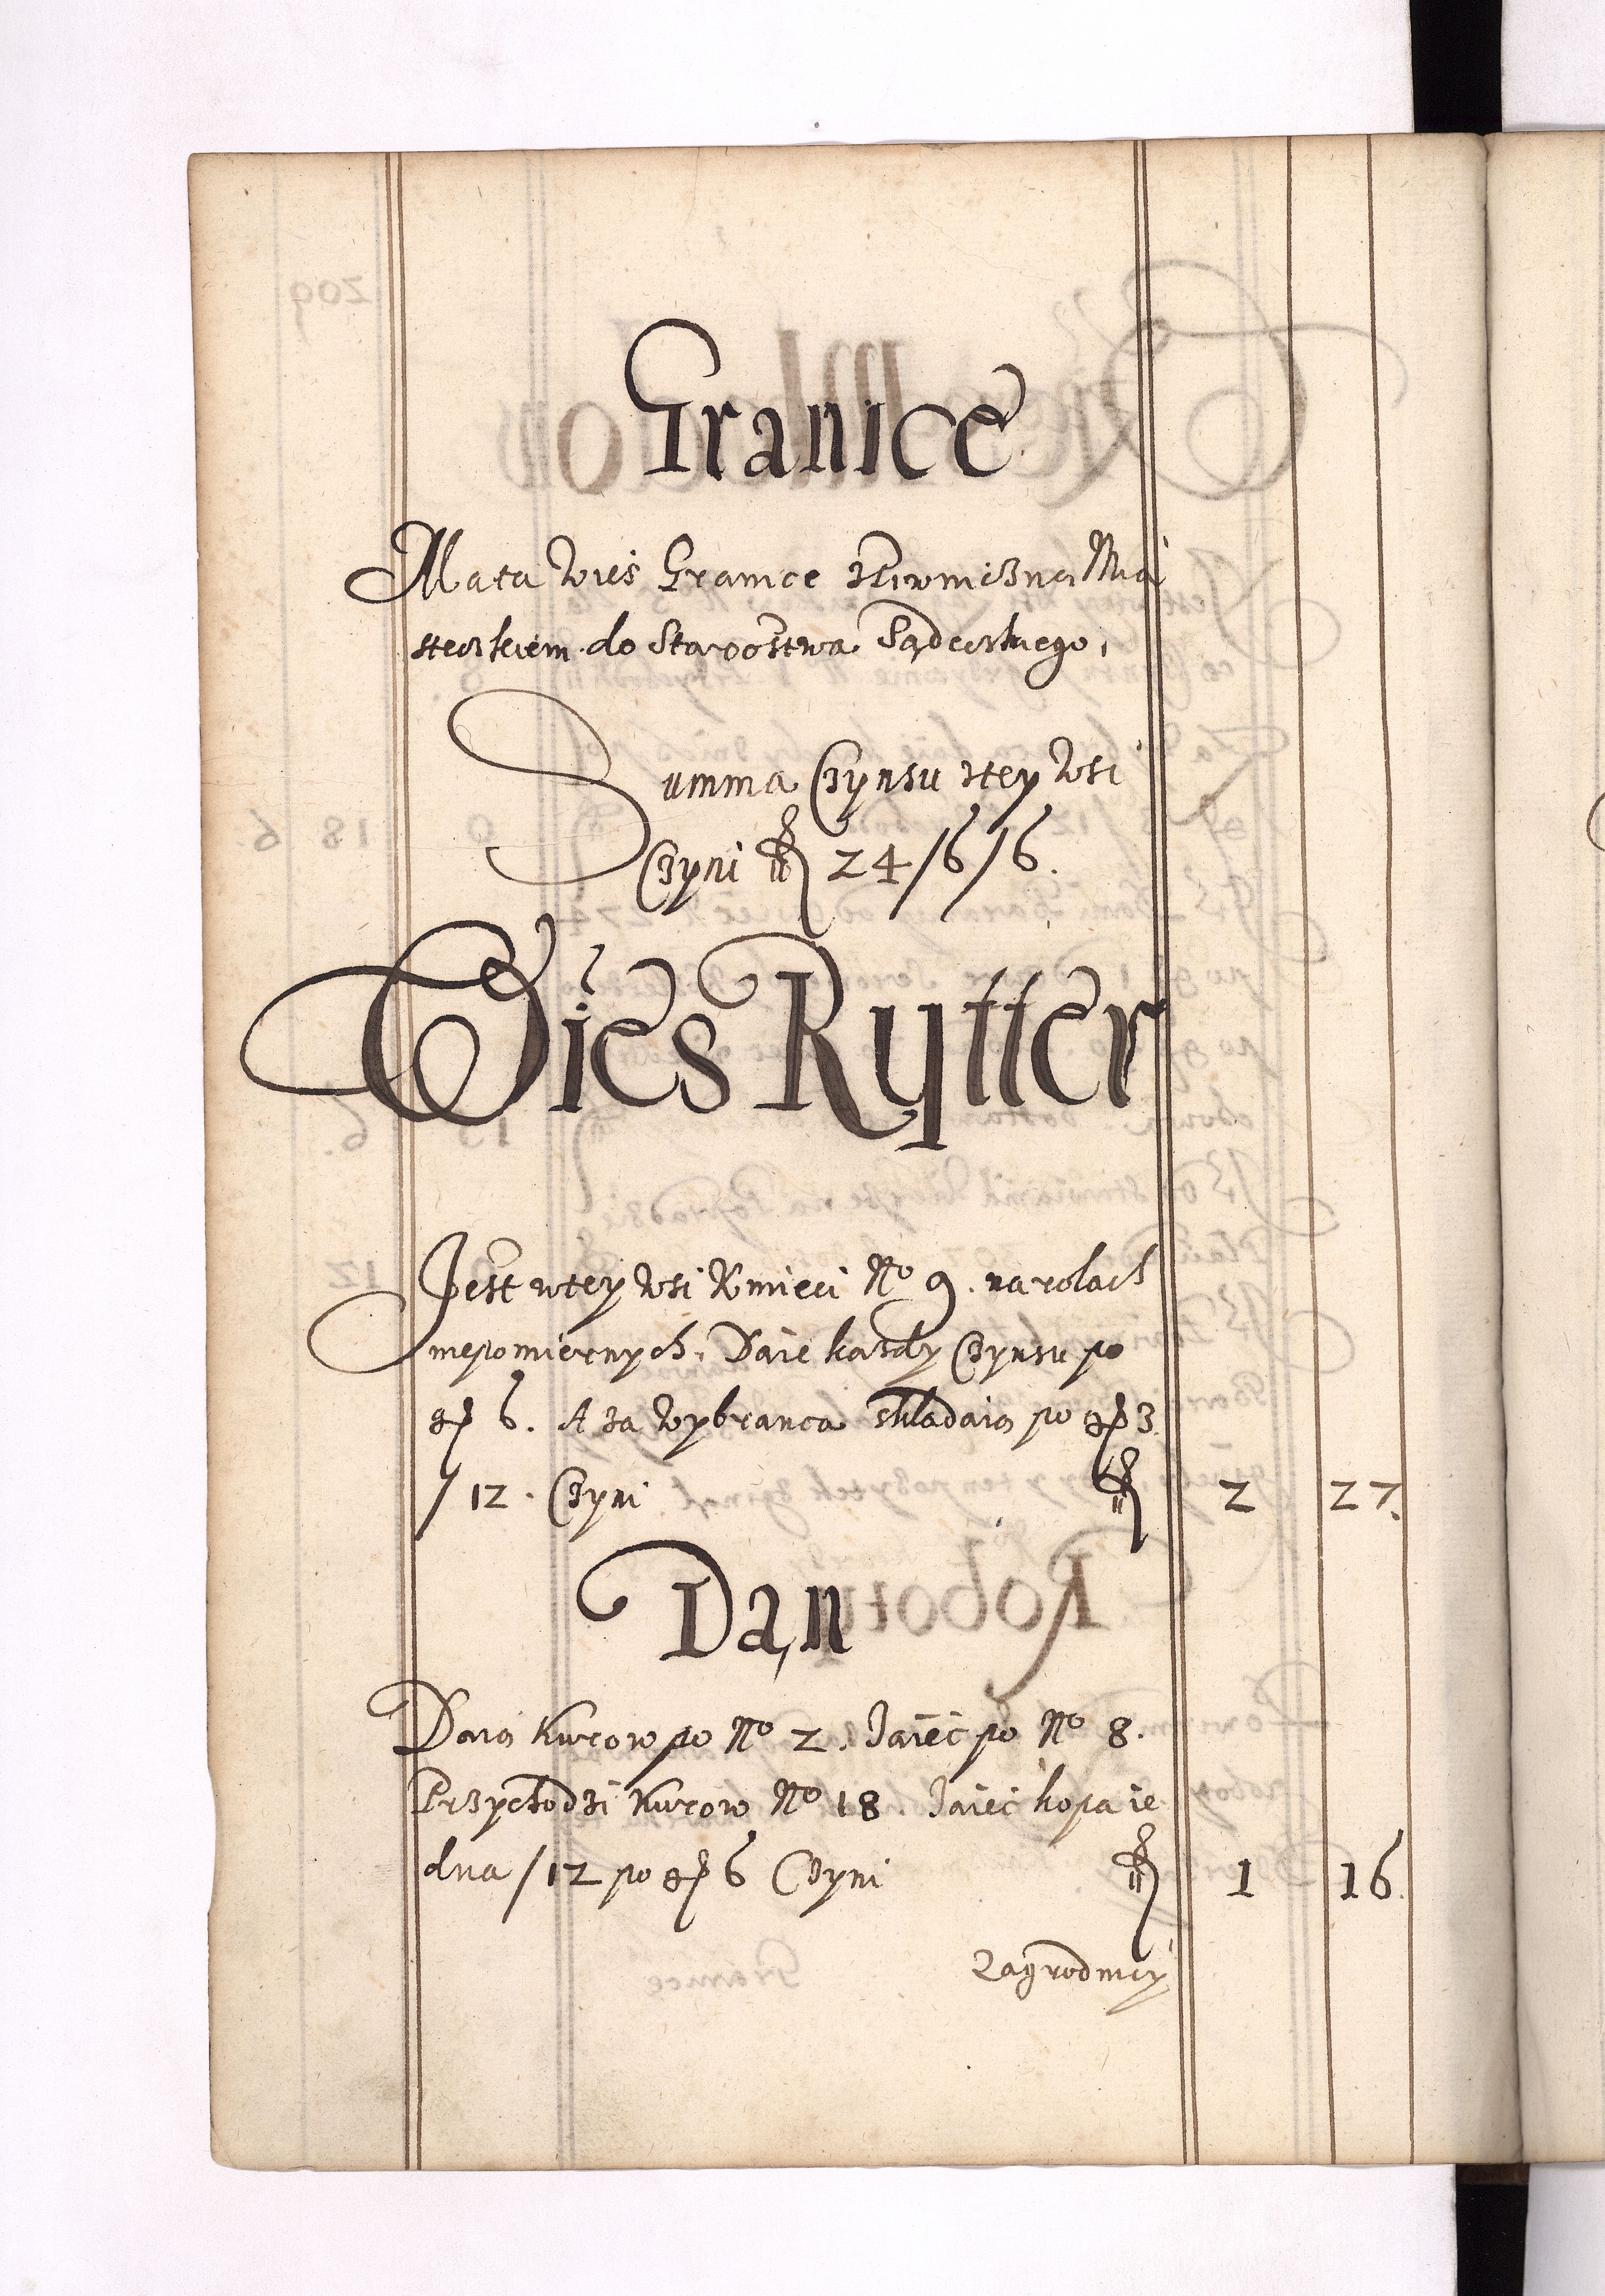 Granice
Mata Wieś Granice zPiwniczną Mia
steczkiem do Starostwa Sądeckiego,
Summa Czynsu ztey Wsi
Czyni fl 24/6/6.
Wieś Rytter
Jest wtey Wsi Kmieci No 9. na rolach
niepomiernych. Daie kaszdy Czynsu po
gr 6. A za Wybranca składaią po gr 3
/12. Czyni fl 2 27.
Dan
Daią Kurow po No 2. Jaiec po No 8.
Przychodzi Kurow No 18. Jaiec kopa ie
dna /12 po gr 6 Czyni fl 1 16.
Zagrodnicy